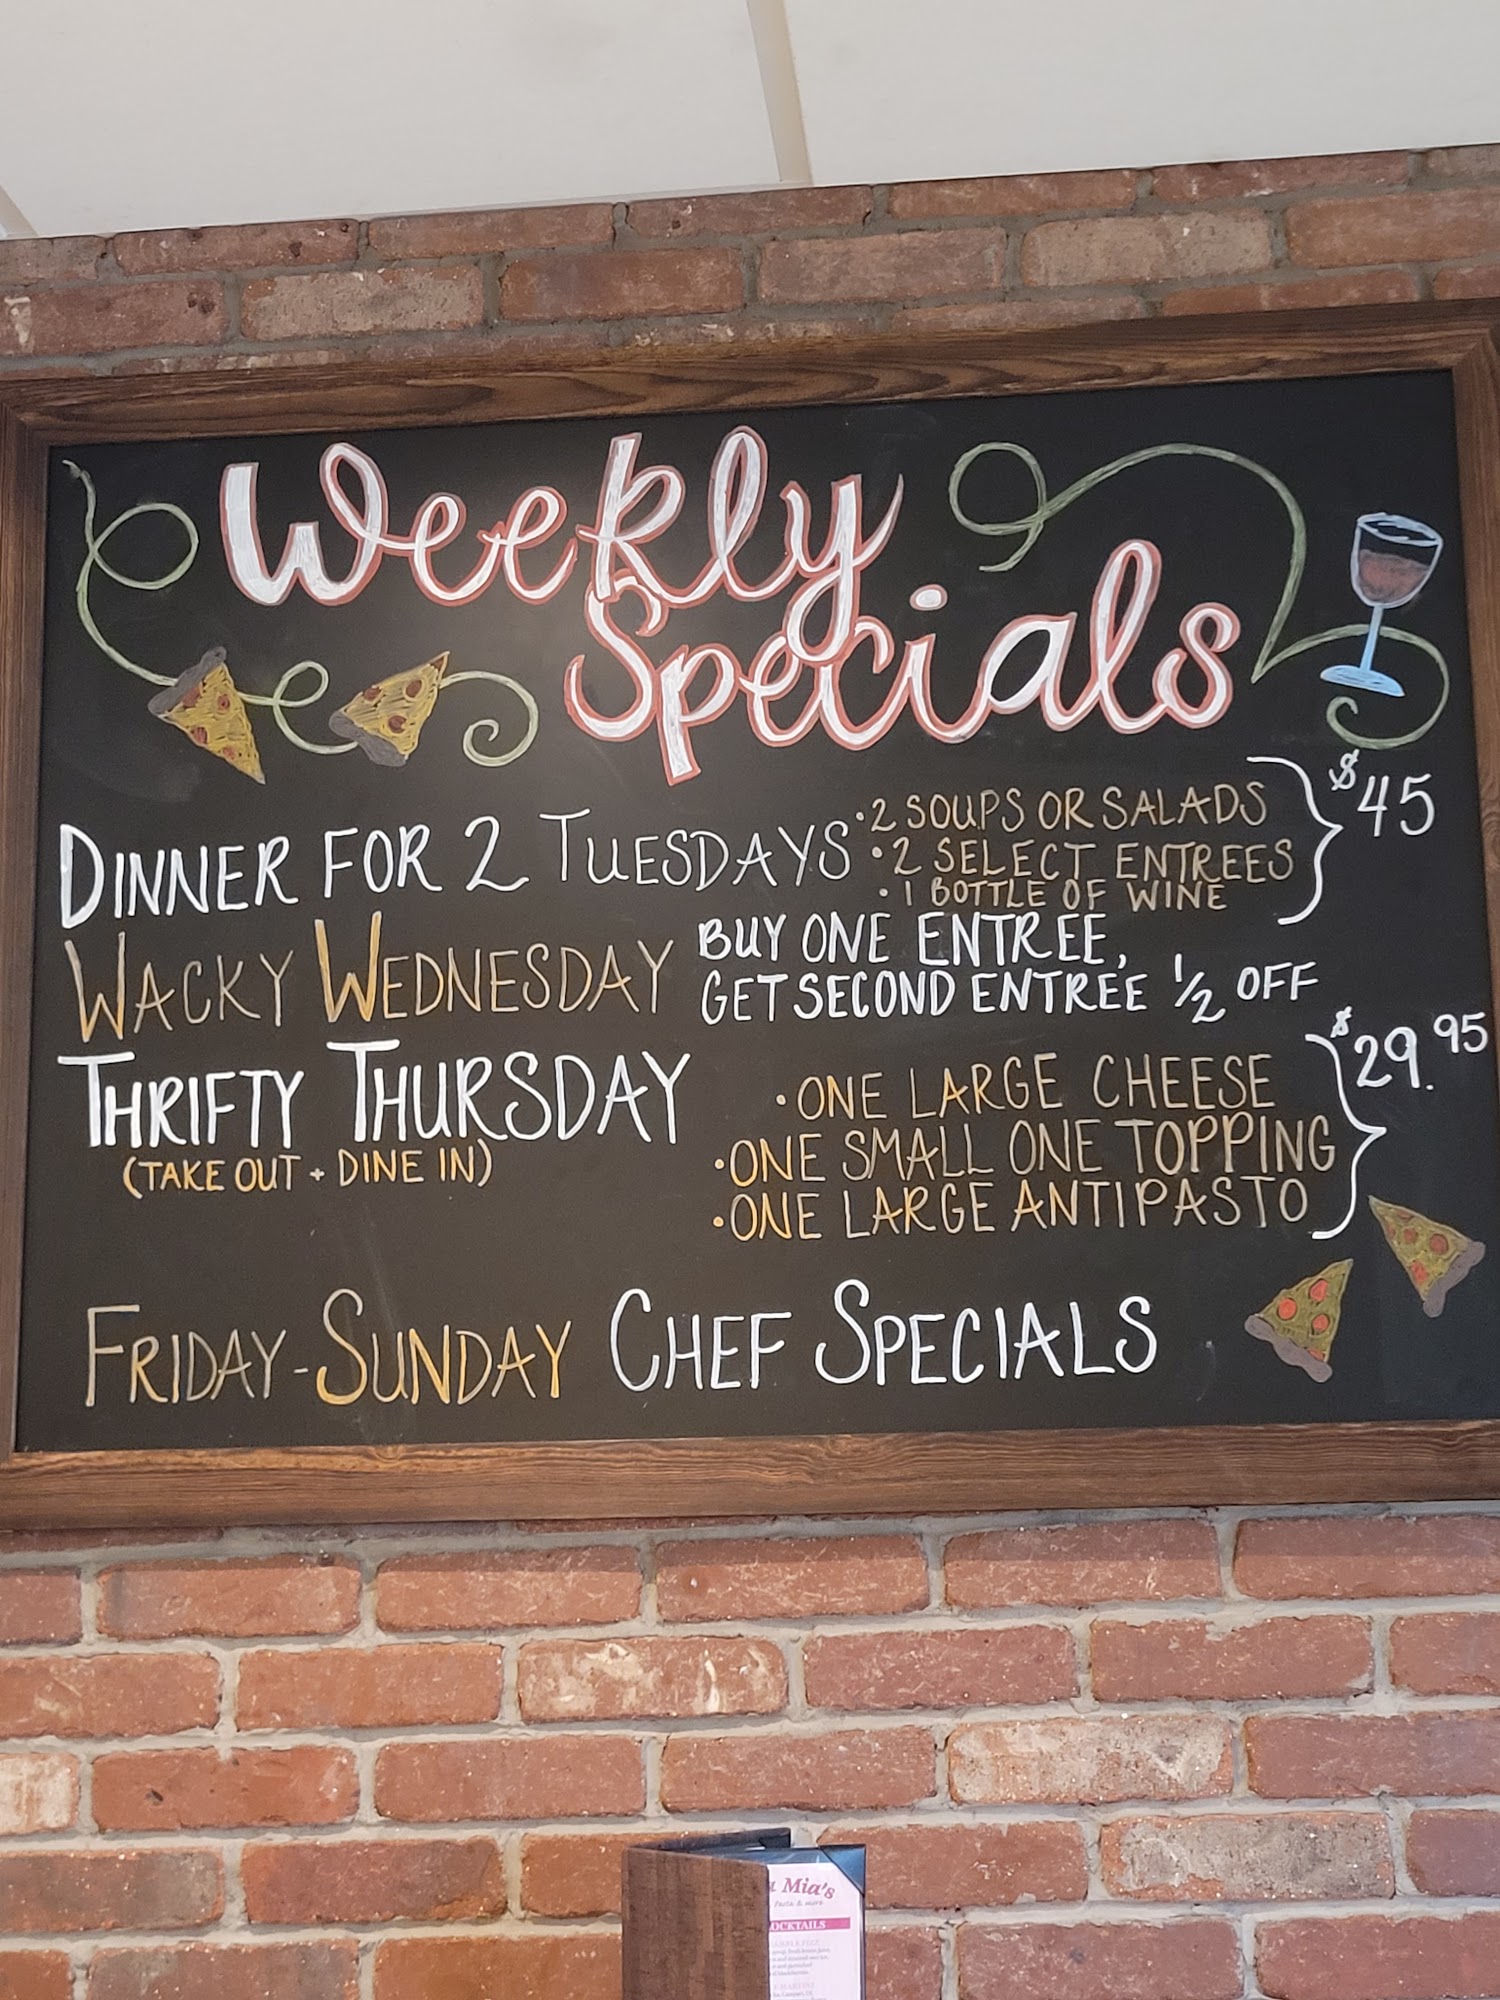 Weekly
Specials
DINNER FOR 2 TUESDAYS
• 2 SOUPS OR SALADS
• 2 SELECT ENTREES
• 1 BOTTLE OF WINE
$45
WACKY WEDNESDAY
BUY ONE ENTREE,
GET SECOND ENTREE 1/2 OFF
THRIFTY THURSDAY
(TAKE OUT + DINE IN)
• ONE LARGE CHEESE
• ONE SMALL ONE TOPPING
• ONE LARGE ANTIPASTO
$29.95
FRIDAY-SUNDAY CHEF SPECIALS
Mia's
Pasta & more